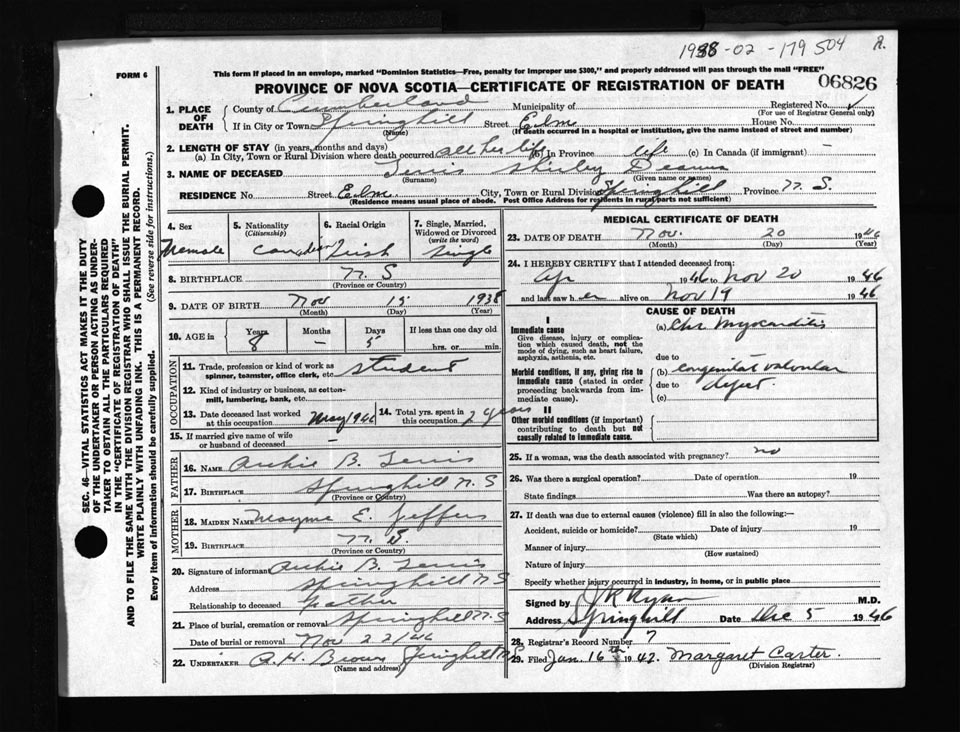 1938-02-179504
FORM 6
This form if placed in an envelope, marked "Dominion Statistics—Free, penalty for improper use $300," and properly addressed will pass through the mail "FREE"
PROVINCE OF NOVA SCOTIA—CERTIFICATE OF REGISTRATION OF DEATH
06826
1. PLACE OF DEATH
County of Cumberland Municipality of Registered No.
(For use of Registrar General only)
If in City or Town Springhill Street Elm House No.
(Name) (If death occurred in a hospital or institution, give the name instead of street and number)
2. LENGTH OF STAY (in years, months and days)
(a) In City, Town or Rural Division where death occurred all her life (b) In Province life (c) In Canada (if immigrant) —
3. NAME OF DECEASED Shirley
(Surname) (Given name or names)
RESIDENCE No. Street Elm City, Town or Rural Division Springhill Province N. S.
(Residence means usual place of abode. Post Office Address for residents in rural parts not sufficient)
4. Sex
Female
5. Nationality
(Citizenship)
Canadian
6. Racial Origin
Irish
7. Single, Married, Widowed or Divorced
(write the word)
Single
8. BIRTHPLACE N. S
(Province or Country)
9. DATE OF BIRTH Nov 15 1938
(Month) (Day) (Year)
10. AGE in
Years Months Days If less than one day old
8 — 5 hrs. or min.
OCCUPATION
11. Trade, profession or kind of work as spinner, teamster, office clerk, etc. Student
12. Kind of industry or business, as cotton-mill, lumbering, bank, etc.
13. Date deceased last worked at this occupation May 1946
14. Total yrs. spent in this occupation 2 years
15. If married give name of wife or husband of deceased —
FATHER
16. NAME Archie B.
17. BIRTHPLACE Springhill N. S
(Province or Country)
MOTHER
18. MAIDEN NAME Mayme E. Jeffers
19. BIRTHPLACE N. S.
(Province or Country)
20. Signature of informant Archie B.
Address Springhill N S
Relationship to deceased Father
21. Place of burial, cremation or removal Springhill N. S
Date of burial or removal Nov 22/46
22. UNDERTAKER A. H. Brown Springhill N. S
(Name and address)
MEDICAL CERTIFICATE OF DEATH
23. DATE OF DEATH Nov. 20 1946
(Month) (Day) (Year)
24. I HEREBY CERTIFY that I attended deceased from:
Apr 1946 to Nov 20 1946
and last saw her alive on Nov 19 1946
CAUSE OF DEATH
I
Immediate cause
Give disease, injury or complication which caused death, not the mode of dying, such as heart failure, asphyxia, asthenia, etc.
(a) Chr Myocarditis
due to
Morbid conditions, if any, giving rise to immediate cause (stated in order proceeding backwards from immediate cause).
(b) congenital valvular
due to defect.
(c)
II
Other morbid conditions (if important) contributing to death but not causally related to immediate cause.
25. If a woman, was the death associated with pregnancy? no
26. Was there a surgical operation? Date of operation 19
State findings Was there an autopsy?
27. If death was due to external causes (violence) fill in also the following:—
Accident, suicide or homicide? Date of injury 19
(State which)
Manner of injury
(How sustained)
Nature of injury
Specify whether injury occurred in industry, in home, or in public place
Signed by M.D.
Address Springhill Date Dec 5 1946
28. Registrar's Record Number 7
29. Filed Jan. 16th 1947. Margaret Carter.
(Division Registrar)
SEC. 46—VITAL STATISTICS ACT MAKES IT THE DUTY
OF THE UNDERTAKER OR PERSON ACTING AS UNDER-
TAKER TO OBTAIN ALL THE PARTICULARS REQUIRED
IN THE "CERTIFICATE OF REGISTRATION OF DEATH"
AND TO FILE THE SAME WITH THE DIVISION REGISTRAR WHO SHALL ISSUE THE BURIAL PERMIT.
WRITE PLAINLY WITH UNFADING INK. THIS IS A PERMANENT RECORD.
Every item of information should be carefully supplied. (See reverse side for instructions.)